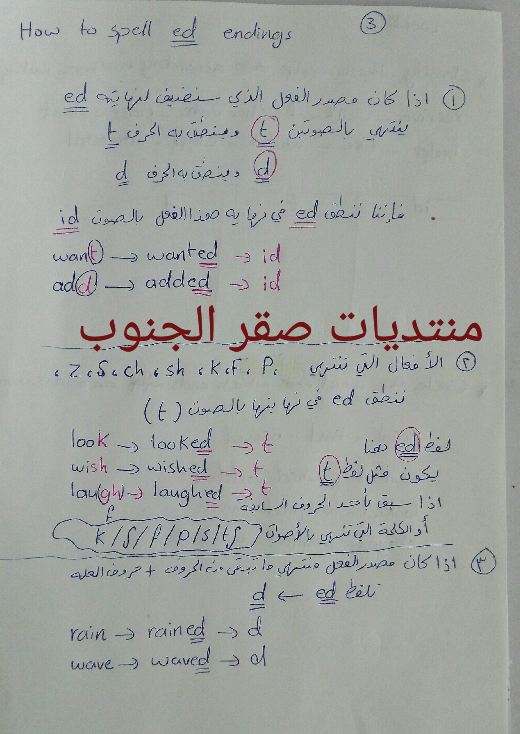 How to spell ed endings ③
① اذا كان مصدر الفعل الذي سنضيف لنهايته ed
ينتهي بالصوتين t وينطق به الحرف t
d وينطق به الحرف d
فإننا ننطق ed في نهاية هذا الفعل بالصوت id
want → wanted → id
add → added → id
منتديات صقر الجنوب
② الأفعال التي تنتهي P، F، K، sh، ch، S، Z،
ننطق ed في نهايتها بالصوت (t)
look → looked → t لفظ ed هنا
wish → wished → t يكون مثل لفظ t
laugh → laughed → t
f اذا سبق بأحد الحروف السابقة
أو الكلمة التي تنتهي بالأصوات k/ʃ/f/p/s/tʃ
③ اذا كان مصدر الفعل منتهي ما تبقى من الحروف + حروف العله
تلفظ ed ← d
rain → rained → d
wave → waved → d